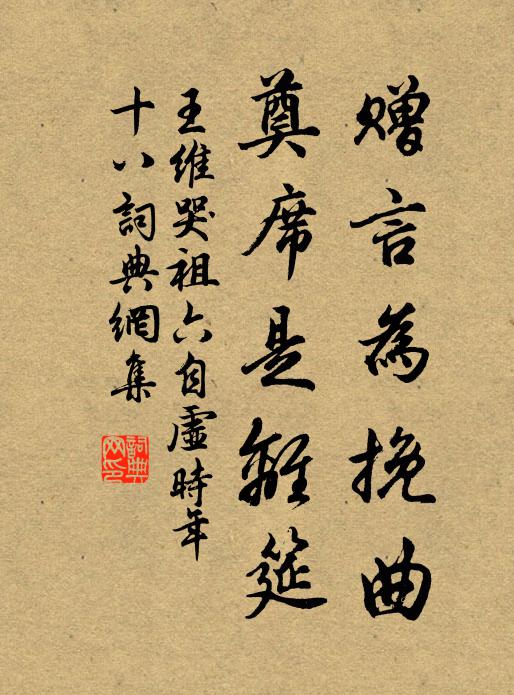 赠言為挽曲
奠席是離筵
王維哭祖六自虛時年
十八詞典網集
詞典
网印